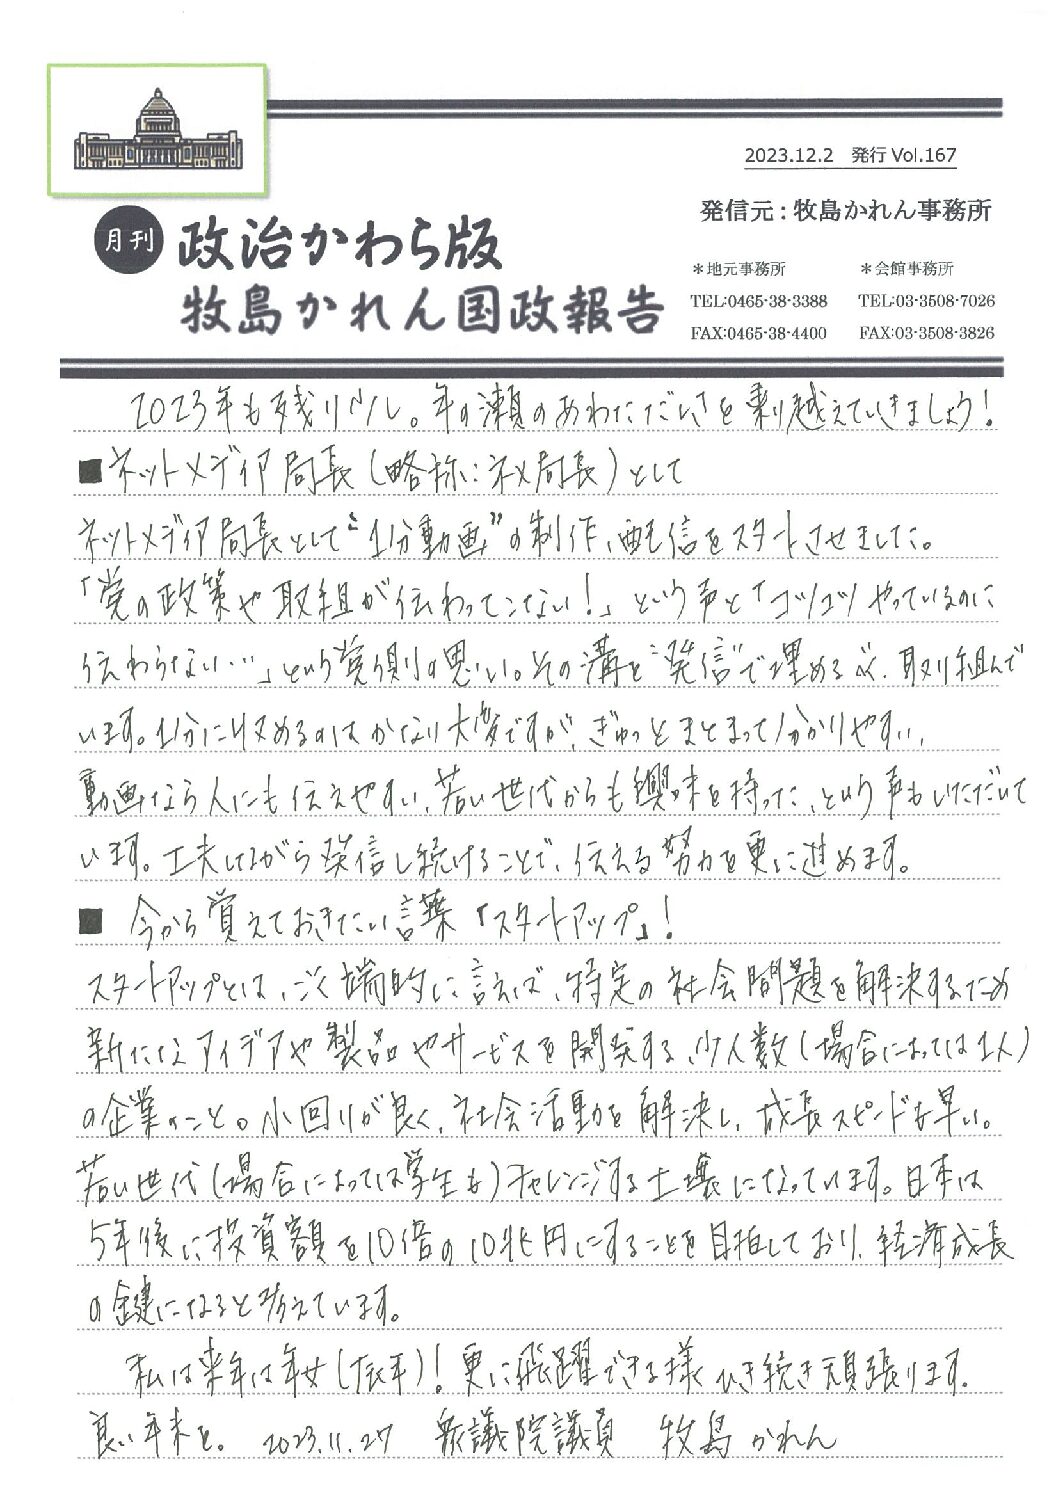 2023.12.2 発行 Vol.167
発信元:牧島かれん事務所
月刊 政治かわら版
牧島かれん国政報告
*地元事務所 *会館事務所
TEL:0465-38-3388 TEL:03-3508-7026
FAX:0465-38-4400 FAX:03-3508-3826
2023年も残り少し。年の瀬のあわただしさを乗り越えていきましょう!
■ネットメディア局長(略称:ネメ局長)として
ネットメディア局長として“1分動画”の制作、配信をスタートさせました。
「党の政策や取組が伝わってこない!」という声と「コツコツやっているのに
伝わらない…」という党側の思い。その溝を“発信”で埋める為、取り組んで
います。1分に収めるのはかなり大変ですが、ぎゅっとまとまって分かりやすい、
動画なら人にも伝えやすい、若い世代からも興味を持った、という声もいただいて
います。工夫しながら発信し続けることで、伝える努力を更に進めます。
■ 今から覚えておきたい言葉「スタートアップ」!
スタートアップとは、ごく端的に言えば、特定の社会問題を解決するため
新たなアイデアや製品やサービスを開発する、少人数(場合によっては1人)
の企業のこと。小回りが良く、社会活動を解決し、成長スピードも早い。
若い世代(場合によっては学生も)チャレンジする土壌になっています。日本は
5年後に投資額を10倍の10兆円にすることを目指しており、経済成長
の鍵になると考えています。
私は来年は年女(辰年)!更に飛躍できる様ひき続き頑張ります。
良い年末を。 2023.11.27 衆議院議員 牧島かれん